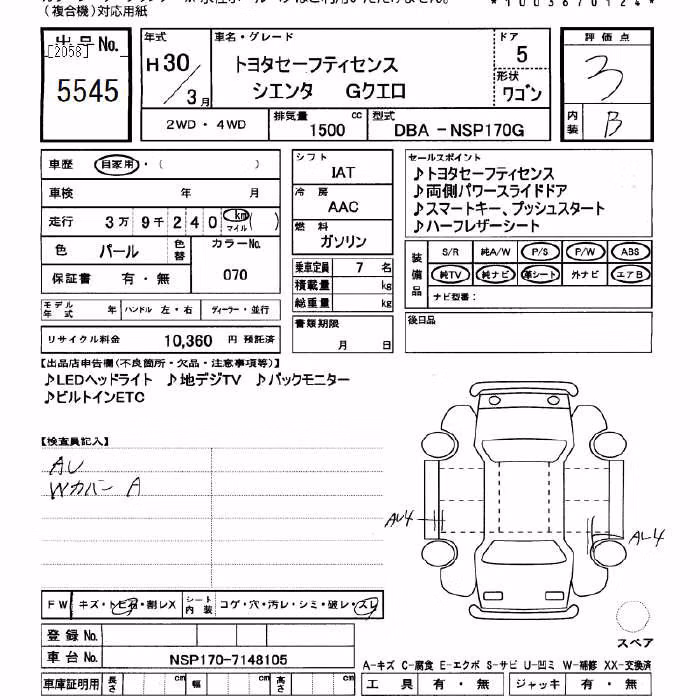 （複合機）対応用紙
*1003670124*
出品No.
[2058]
5545
年式
H30/3月
車名・グレード
トヨタセーフティセンス
シエンタ Gクエロ
ドア
5
形状
ワゴン
評価点
3
内装
B
2WD・4WD
排気量 1500 cc
型式 DBA-NSP170G
車歴 自家用・( )
車検 年 月
走行 3万9千240 km マイル ( )
色 パール 色替
カラーNo. 070
保証書 有・無
モデル年式 年 ハンドル 左・右 ディーラー・並行
リサイクル料金 10,360 円 預託済
シフト
IAT
冷房
AAC
燃料
ガソリン
乗車定員 7 名
積載量 kg
総重量 kg
書類期限
月 日
セールスポイント
♪トヨタセーフティセンス
♪両側パワースライドドア
♪スマートキー、プッシュスタート
♪ハーフレザーシート
装備品
S/R 純A/W P/S P/W ABS
純TV 純ナビ 革シート 外ナビ エアB
ナビ型番：
後日品
【出品店申告欄（不良箇所・欠品・注意事項等）】
♪LEDヘッドライト ♪地デジTV ♪バックモニター
♪ビルトインETC
【検査員記入】
AU
Wカバー A
AU4
AU4
スペア
FW キズ・トビ石・割レX シート内装 コゲ・穴・汚レ・シミ・破レ・スレ
登録No.
車台No. NSP170-7148105
車庫証明用 長さ cm 幅 cm 高さ cm
A-キズ C-腐食 E-エクボ S-サビ U-凹ミ W-補修 XX-交換済
工具 有・無 ジャッキ 有・無